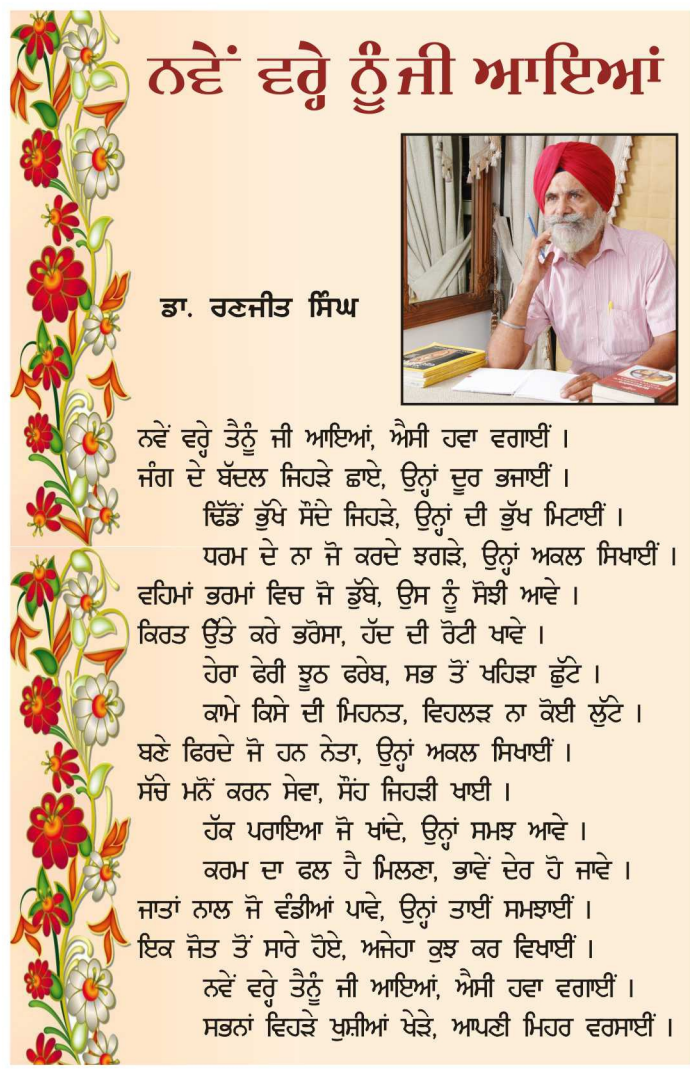 ਨਵੇਂ ਵਰ੍ਹੇ ਨੂੰ ਜੀ ਆਇਆਂ
ਡਾ. ਰਣਜੀਤ ਸਿੰਘ
ਨਵੇਂ ਵਰ੍ਹੇ ਤੈਨੂੰ ਜੀ ਆਇਆਂ, ਐਸੀ ਹਵਾ ਵਗਾਈਂ ।
ਜੰਗ ਦੇ ਬੱਦਲ ਜਿਹੜੇ ਛਾਏ, ਉਨ੍ਹਾਂ ਦੂਰ ਭਜਾਈਂ ।
ਢਿੱਡੋਂ ਭੁੱਖੇ ਸੌਂਦੇ ਜਿਹੜੇ, ਉਨ੍ਹਾਂ ਦੀ ਭੁੱਖ ਮਿਟਾਈਂ ।
ਧਰਮ ਦੇ ਨਾ ਜੋ ਕਰਦੇ ਝਗੜੇ, ਉਨ੍ਹਾਂ ਅਕਲ ਸਿਖਾਈਂ ।
ਵਹਿਮਾਂ ਭਰਮਾਂ ਵਿਚ ਜੋ ਡੁੱਬੇ, ਉਸ ਨੂੰ ਸੋਝੀ ਆਵੇ ।
ਕਿਰਤ ਉੱਤੇ ਕਰੇ ਭਰੋਸਾ, ਹੱਦ ਦੀ ਰੋਟੀ ਖਾਵੇ ।
ਹੇਰਾ ਫੇਰੀ ਝੂਠ ਫਰੇਬ, ਸਭ ਤੋਂ ਖਹਿੜਾ ਛੁੱਟੇ ।
ਕਾਮੇ ਕਿਸੇ ਦੀ ਮਿਹਨਤ, ਵਿਹਲੜ ਨਾ ਕੋਈ ਲੁੱਟੇ ।
ਬਣੇ ਫਿਰਦੇ ਜੋ ਹਨ ਨੇਤਾ, ਉਨ੍ਹਾਂ ਅਕਲ ਸਿਖਾਈਂ ।
ਸੱਚੇ ਮਨੋਂ ਕਰਨ ਸੇਵਾ, ਸੌਂਹ ਜਿਹੜੀ ਖਾਈ ।
ਹੱਕ ਪਰਾਇਆ ਜੋ ਖਾਂਦੇ, ਉਨ੍ਹਾਂ ਸਮਝ ਆਵੇ ।
ਕਰਮ ਦਾ ਫਲ ਹੈ ਮਿਲਣਾ, ਭਾਵੇਂ ਦੇਰ ਹੋ ਜਾਵੇ ।
ਜਾਤਾਂ ਨਾਲ ਜੋ ਵੰਡੀਆਂ ਪਾਵੇ, ਉਨ੍ਹਾਂ ਤਾਈਂ ਸਮਝਾਈਂ ।
ਇਕ ਜੋਤ ਤੋਂ ਸਾਰੇ ਹੋਏ, ਅਜੇਹਾ ਕੁਝ ਕਰ ਵਿਖਾਈਂ ।
ਨਵੇਂ ਵਰ੍ਹੇ ਤੈਨੂੰ ਜੀ ਆਇਆਂ, ਐਸੀ ਹਵਾ ਵਗਾਈਂ ।
ਸਭਨਾਂ ਵਿਹੜੇ ਖੁਸ਼ੀਆਂ ਖੇੜੇ, ਆਪਣੀ ਮਿਹਰ ਵਰਸਾਈਂ ।